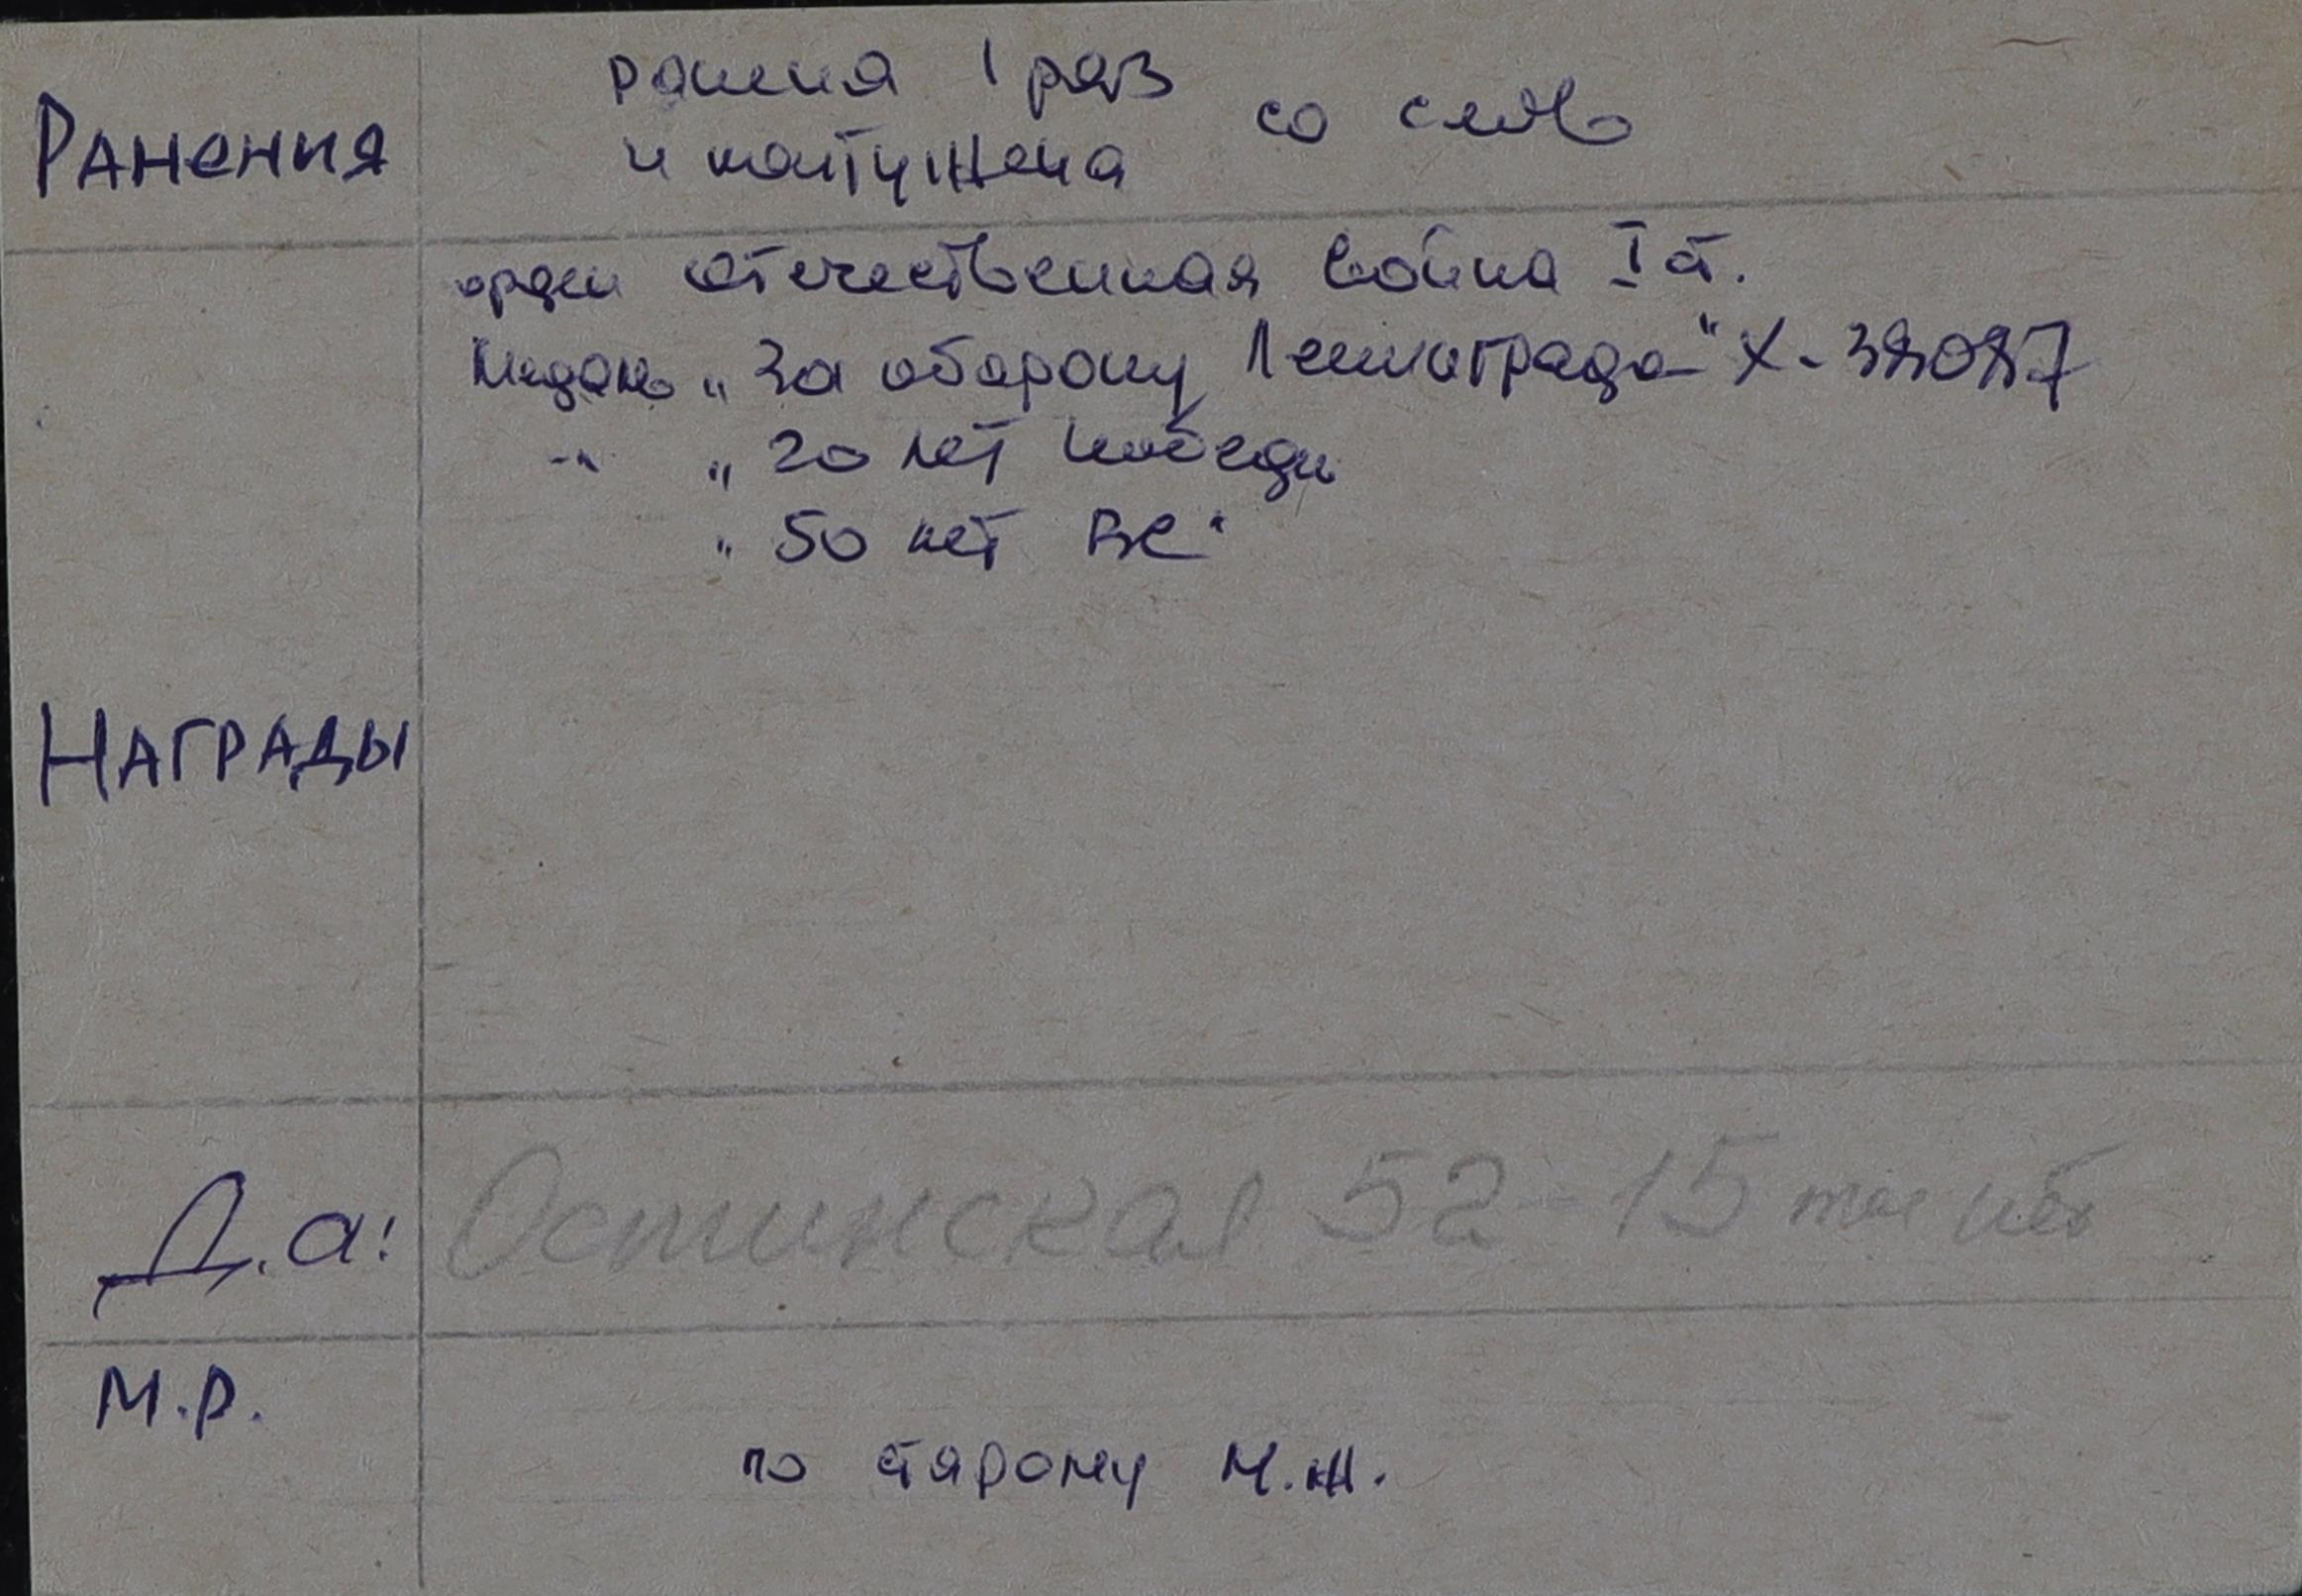 Ранения
ранена 1 раз
и контужена
со слов
орден Отечественная война I ст.
Медаль „За оборону Ленинграда" Х-39097
-"- „20 лет победы
„50 лет ВС"
Награды
Д.а: Осминская 52-15
М.р.
по старому М.Ж.